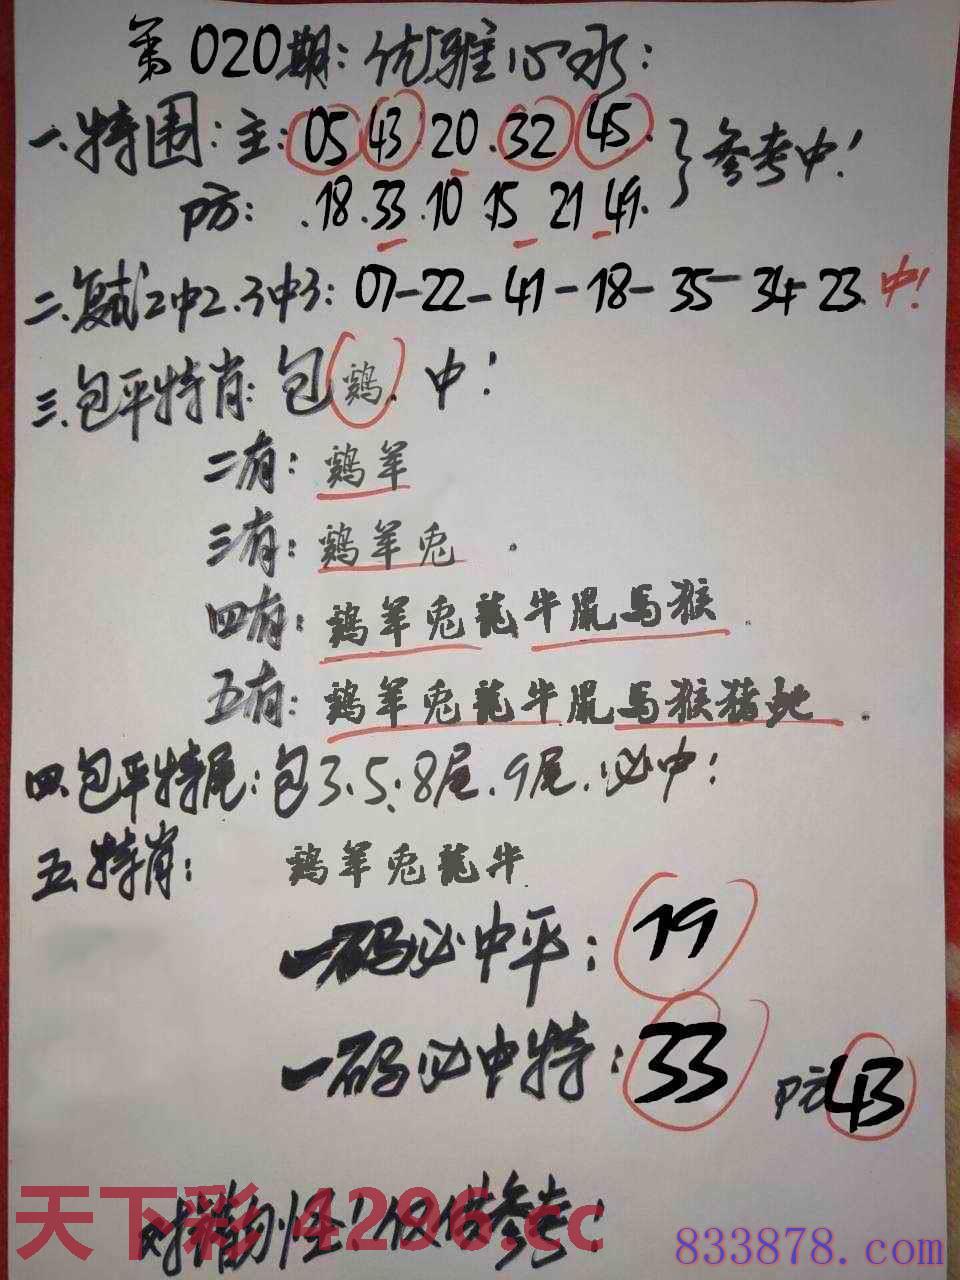 第020期：优雅心水：
一、特围：主：05 43 20 . 32 45. } 参考中！
防：.18.33.10 15 21 49.
二、复式2中2、3中3：07-22-41-18-35-34-23. 中！
三、包平特肖：包鷄. 中！
二有：鷄羊
三有：鷄羊兎 .
四有：鷄羊兎龍牛鼠馬猴 .
五有：鷄羊兎龍牛鼠馬猴猪蛇 .
四、包平特尾：包3、5：8尾.9尾.必中！
五、特肖：鷄羊兎龍牛
一码必中平：19
一码必中特：33 防43
对错勿怪！仅供参考！
天下彩 4296.cc
833878.com